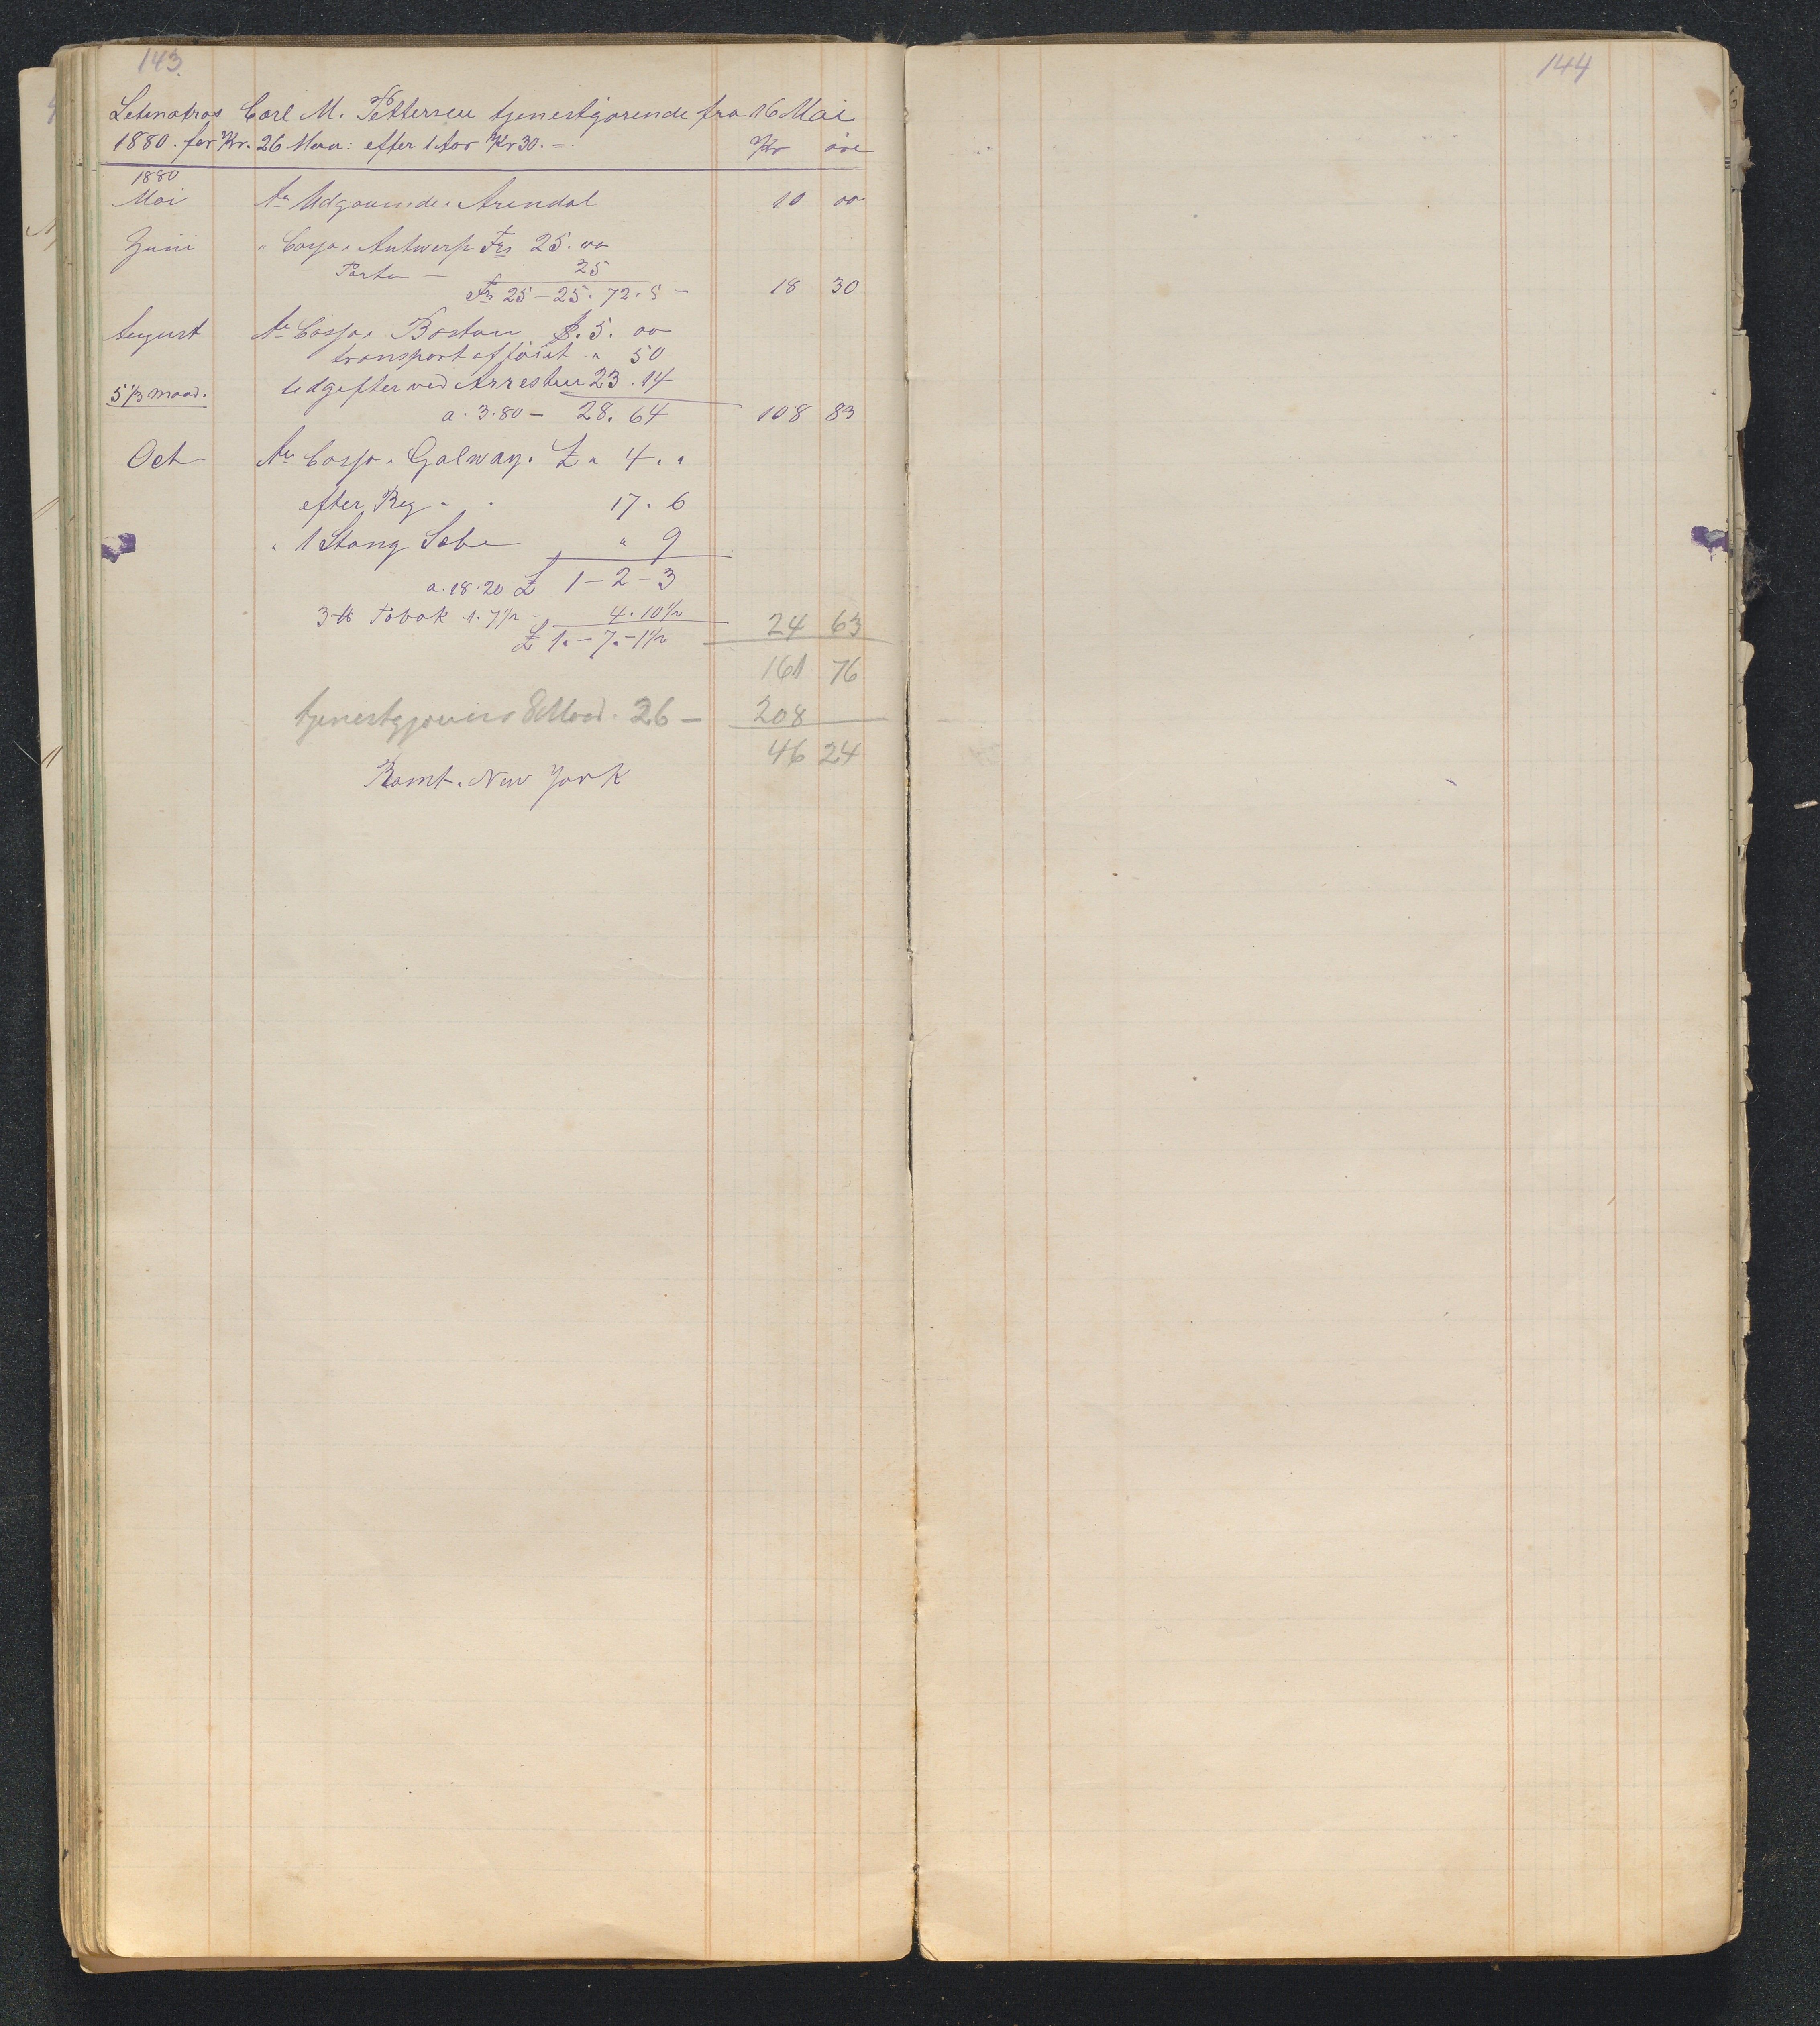 143.
144
Letmatros Carl M. Pettersen tjenestgjörende fra 16 Mai
1880. for Kr. 26 Maan: efter 1 Aar Kr 30. = Kr öre
1880
Mai An Udgaaende Arendal 10 00
Juni " Cassa. Antwerp Frs 25. 00
Porto — 25
Frs 25 — 25. 72.5 — 18 30
August An Cassa. Boston $. 5. 00
transport af töiet " 50
5 1/3 maad. Udgifter ved Arresten 23. 14
a. 3.80 — 28. 64 108 83
Oct An Cassa. Galway. £ " 4. "
efter Reg " . 17. 6
" 1 Stang Sebe " 9
a. 18.20 £ 1 — 2 — 3
3 ℔ Tobak 1. 7 1/2 — 4. 10 1/2 24 63
£ 1. — 7. — 1 1/2
161 76
8 Maad. 26 — 208
46 24
Römt. New York